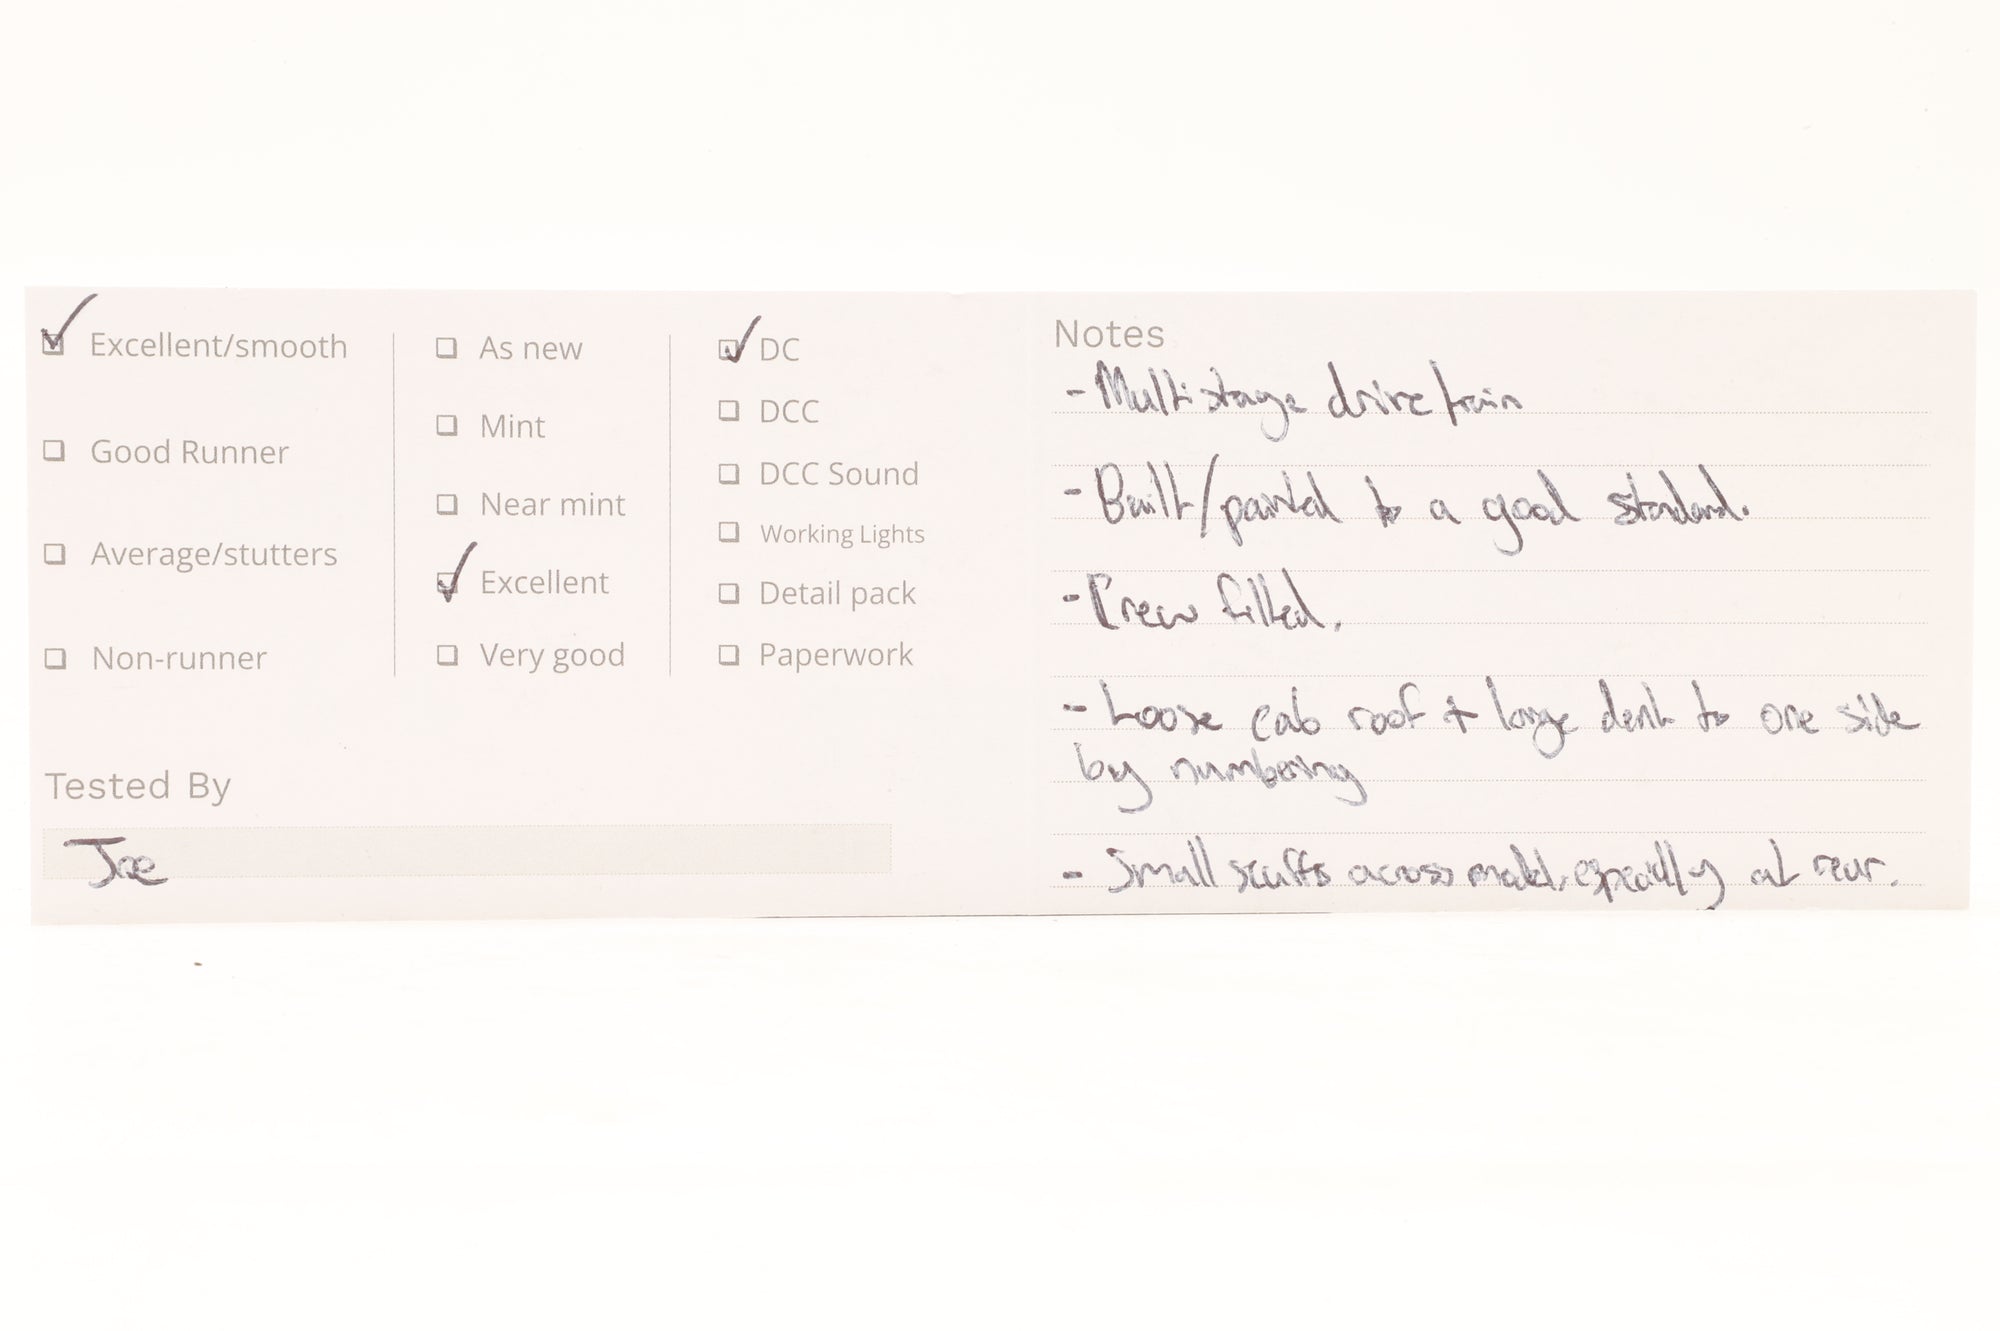 Excellent/smooth
Good Runner
Average/stutters
Non-runner
As new
Mint
Near mint
Excellent
Very good
DC
DCC
DCC Sound
Working Lights
Detail pack
Paperwork
Tested By
Joe
Notes
- Multistage drivetrain
- Built/painted to a good standard.
- Crew fitted.
- Loose cab roof + large dent to one side
by numbering
- Small scuffs across model, especially at rear.